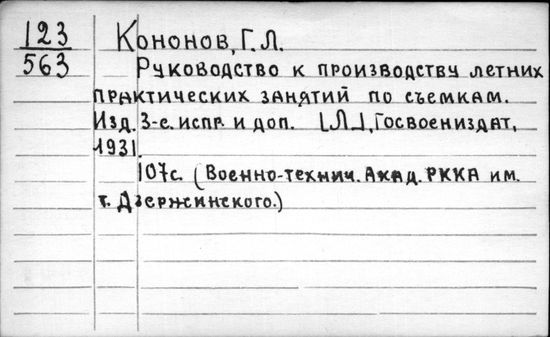 123 Кононов, Г.Л.
563 Руководство к производству летних
практических занятий по съемкам.
Изд. 3-е. испр. и доп. [Л.], Госвоениздат,
1931.
107с. (Военно-технич. Акад. РККА им.
т. Дзержинского.)